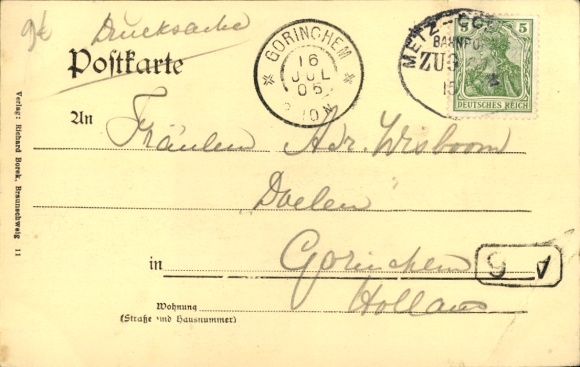 Drucksache
Postkarte
GORINCHEM
16
JUL
06
10N
METZ-CO
BAHNPO
ZUG
15
5 5
DEUTSCHES REICH
An Fräulein Adr. Wisboom
Doelen
in Gorinchem
Holland
A 6
Wohnung
(Straße und Hausnummer)
Verlag: Richard Borek, Braunschweig 11